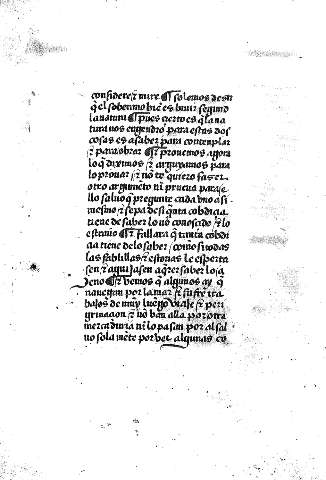 considere τ mire ¶ solemos desir
q̃ el soberano biẽ es biuir segund
la natura ¶ pues cierto es q̃ la na
tura nos engendro para estas dos
cosas es a saber para contenplar
τ para obrar ¶ τ prouemos agora
lo q̃ diximos τ arguyamos para
lo prouar τ nõ te quiero faser
otro argumẽto nĩ prueua para e
llo saluo q̃ pregunte cada vno a si
mesmo τ sepa de si q̃nta cobdiçia
tiene de saber lo nõ conosçido τ lo
estranio ¶ τ fallara q̃ tanta cobdi
çia tiene de lo saber como si todas
las fablillas τ estorias le esperta
sen τ aqui fasen a q̃rer saber lo a
geno ¶ τ vemos q̃ algunos ay q̃
nauegan por la mar τ sufrẽ tra
bajos de muy luengo viaje τ peri
grinaçion τ nõ van alla por otra
mercaduria nĩ lo pasan por al sal
uo sola mẽte por ver algunas co